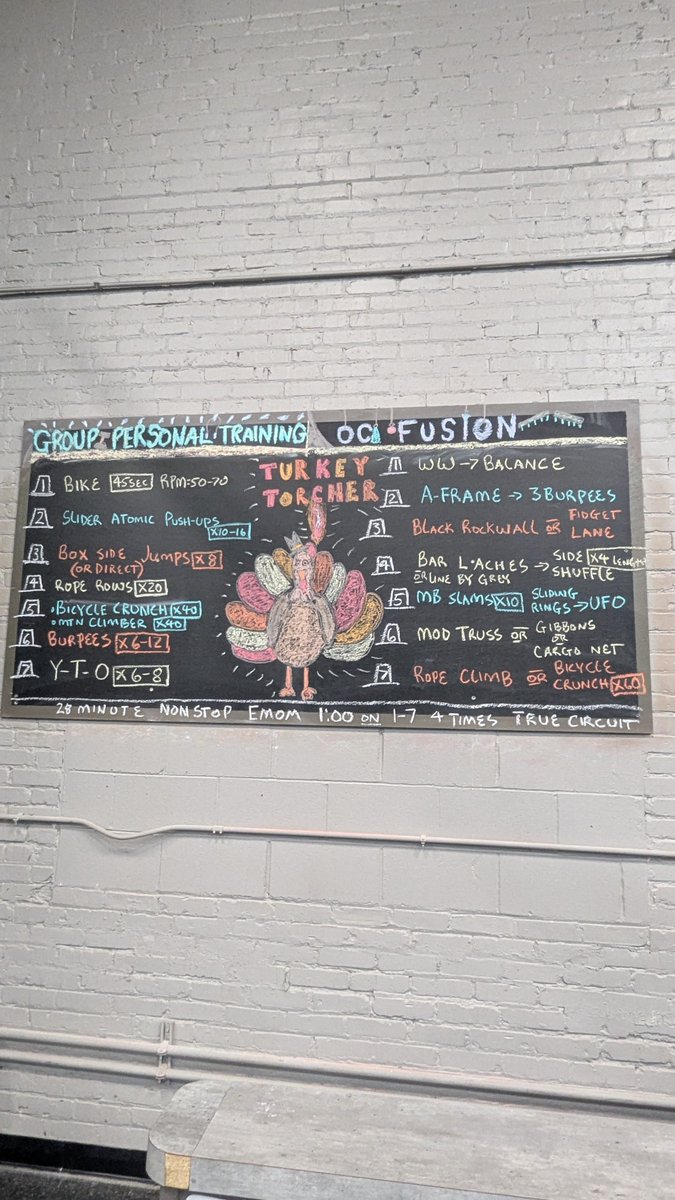 GROUP PERSONAL TRAINING
TURKEY
TORCHER
1 BIKE 45 SEC RPM: 50-70
2 SLIDER ATOMIC PUSH-UPS
X10-16
3 BOX SIDE JUMPS X8
(OR DIRECT)
4 ROPE ROWS X20
5 • BICYCLE CRUNCH X40
• MTN CLIMBER X40
6 BURPEES X6-12
7 Y-T-O X6-8
OCR FUSION
1 WW → BALANCE
2 A-FRAME → 3 BURPEES
3 BLACK ROCKWALL OR FIDGET
LANE
4 BAR L.ACHES → SIDE X4 LENGTH
OR LINE BY GREY SHUFFLE
5 MB SLAMS X10 SLIDING
RINGS → UFO
6 MOD TRUSS OR GIBBONS
OR
CARGO NET
7 ROPE CLIMB OR BICYCLE
CRUNCH X60
28 MINUTE NONSTOP EMOM 1:00 ON 1-7 4 TIMES TRUE CIRCUIT